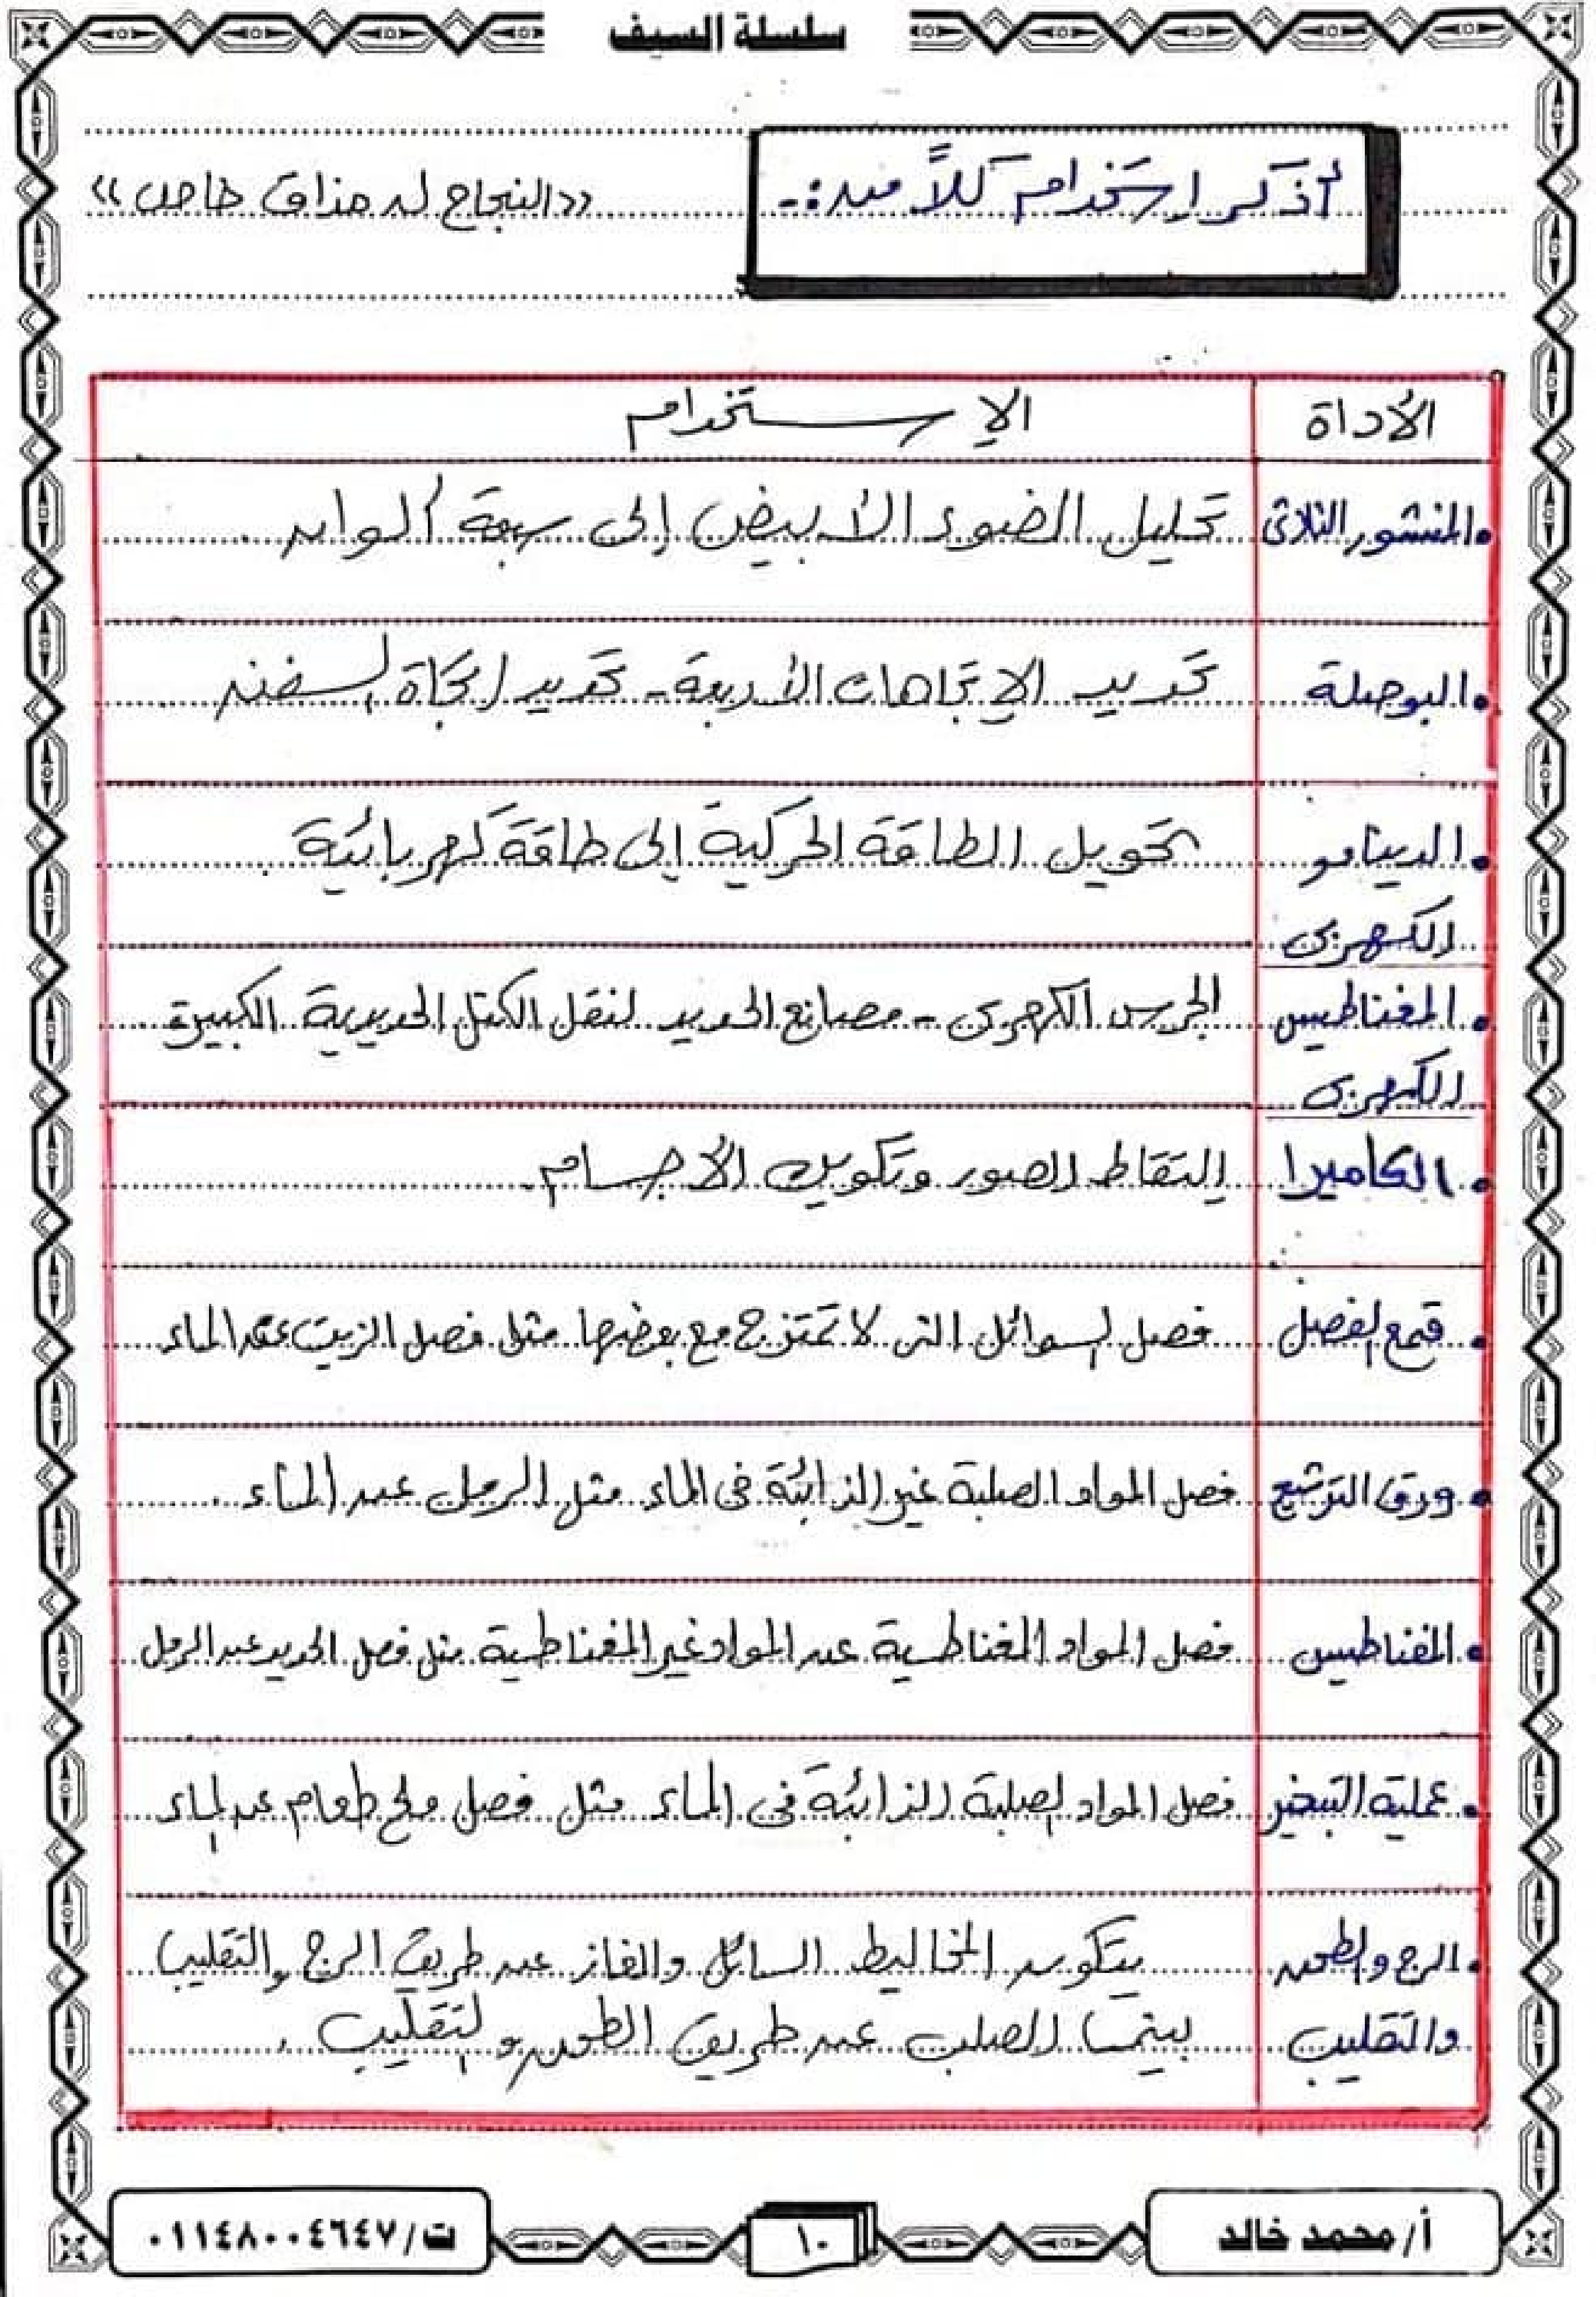 سلسلة السيف
أذكر إستخدام كلاً من :-
((النجاح له مذاق خاص))
الأداة	الإستخدام
• المنشور الثلاثى	تحليل الضوء الأبيض إلى سبعة ألوان
• البوصلة	تحديد الإتجاهات الأربعة - تحديد إتجاة السفن
• الدينامو	تحويل الطاقة الحركية إلى طاقة كهربائية
الكهربى
• المغناطيس	الجرس الكهربى - مصانع الحديد لنقل الكتل الحديدية الكبيرة
الكهربى
• الكاميرا	إلتقاط الصور وتكوين الأجسام
• قمع الفصل	فصل السوائل التى لا تمتزج مع بعضها مثل فصل الزيت عن الماء
• ورق الترشيح	فصل المواد الصلبة غير الذائبة فى الماء مثل الرمل عن الماء .
• المغناطيس	فصل المواد المغناطسية عن المواد غير المغناطسية مثل فصل الحديد عن الرمل
• عملية التبخير	فصل المواد الصلبة الذائبة فى الماء مثل فصل ملح طعام عن الماء
• الرج والطحن	يتكون المخاليط السائل والغاز عن طريق الرج والتقليب
والتقليب	بينما الصلب عن طريق الطحن والتقليب .
أ/ محمد خالد
١٠
ت/ ٠١١٤٨٠٠٤٦٤٧